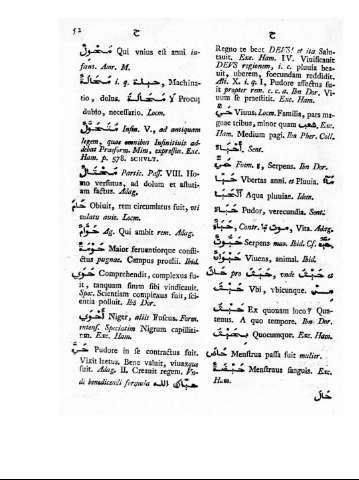 52
ح
ح
مَحْوُلٌ Qui unius est anni in-
fans. Anr. M.
مَحَالَةٌ i. q. حيلة, Machina-
tio, dolus. لا مَحَالَةَ Procul
dubio, necessario. Locm.
Infin. V., ad antiquam
legem, quae omnibus Infinitiuis ad-
debat Praeform. Mim, expressus. Exc.
Ham. p. 578. SCHVLT.
مُحْتَالٌ Partic. Pass. VIII. Ho-
mo versutus, ad dolum et astuti-
am factus. Adag.
حَامَ Obiuit, rem circumlatus fuit, oti
culatu auis. Locm.
Ag. Qui ambit rem. Adag.
حَوْمَةٌ Maior feruantiorque confli-
ctus pugnae. Campus proelii. Ibid.
حَوَى Comprehendit, complexus fu-
it, tanquam sinum sibi vindicauit.
Spec. Scientiam complexus fuit, sci-
entia polluit. Ibn Dor.
أَحْوَى Niger, aliis Fuscus. Form.
intens. Speciatim Nigrum capillati-
um. Exc. Ham.
حَيَّ Pudore in se contractus fuit.
Vixit laetus. Bene valuit, viuaxque
fuit. Adag. II. Creauit regem, Vn-
di benedicendi formula حيّاك الله
Regno te beet DEVS! et ita Salu-
tauit. Exc. Ham. IV. Viuificauit
DEVS regionem, i. e. pluuia bea-
uit, uberem, foecundam reddidit.
Alt. X. i. q. I, Pudore affectus fu-
it propter rem. c. c. a. Ibn Dor. Vi-
uum se praestitit. Exc. Ham.
حَيٌّ Viuus. Locm. Familia, pars ma-
gnae tribus, minor quam شعب. Exc.
Ham. Medium pagi. Ibn Pher. Coll.
Sent.
حَيَّةٌ Foem. s, Serpens. Ibn Dor.
حَيَا Vbertas anni, et Pluuia.
الحَيَا Aqua pluuiae. Iden.
حَيَاءٌ Pudor, verecundia. Sent.
حَيَاةٌ, Contr. موت, Vita. Adag.
Serpens mas. Ibid. Cf. حيّة
حَيَوَانٌ Viuens, animal. Ibid.
حَاثِ pro حَيْثُ, unde حَيْثُ et
حَيْثُ Vbi, vbicunque.
حَيْثُ Ex quonam loco? Qua-
tenus. A quo tempore. Ibn Dor.
بحَيْثُ Quocunque. Exc. Ham.
حَاضَ Menstrua passa fuit mulier.
حَيْضَةٌ Menstruus sanguis. Exc.
Ham.
حال